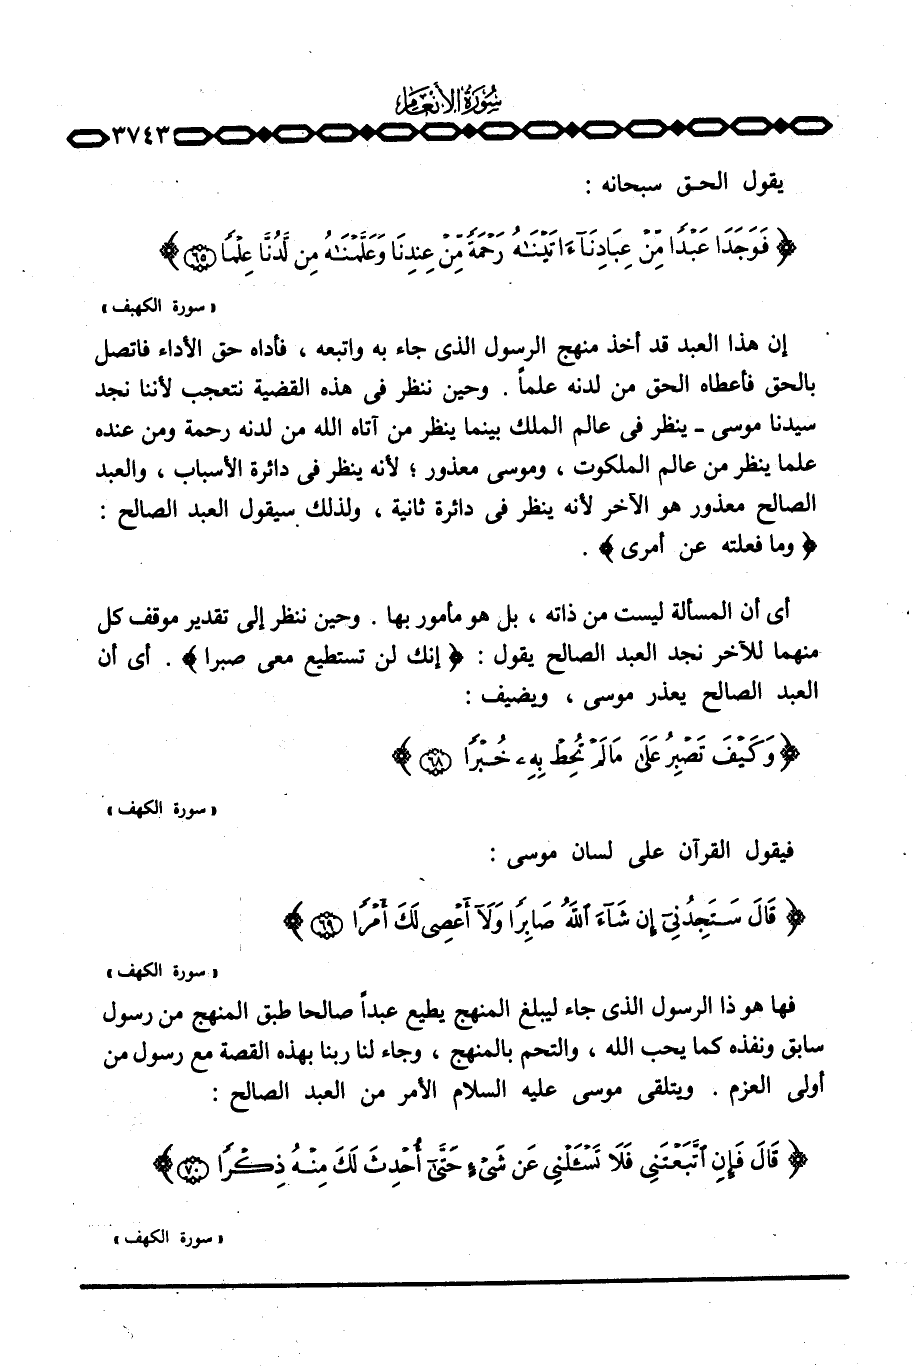 سورة الأنعام
٣٧٤٣
يقول الحق سبحانه :
﴿ فَوَجَدَا عَبْدًا مِّنْ عِبَادِنَآ ءَاتَيْنَٰهُ رَحْمَةً مِّنْ عِندِنَا وَعَلَّمْنَٰهُ مِن لَّدُنَّا عِلْمًا ﴿٦٥﴾ ﴾
« سورة الكهف »
إن هذا العبد قد أخذ منهج الرسول الذى جاء به واتبعه ، فأداه حق الأداء فاتصل
بالحق فأعطاه الحق من لدنه علماً . وحين ننظر فى هذه القضية نتعجب لأننا نجد
سيدنا موسى - ينظر فى عالم الملك بينما ينظر من آتاه الله من لدنه رحمة ومن عنده
علما ينظر من عالم الملكوت ، وموسى معذور ؛ لأنه ينظر فى دائرة الأسباب ، والعبد
الصالح معذور هو الآخر لأنه ينظر فى دائرة ثانية ، ولذلك سيقول العبد الصالح :
﴿ وما فعلته عن أمرى ﴾ .
أى أن المسألة ليست من ذاته ، بل هو مأمور بها . وحين ننظر إلى تقدير موقف كل
منهما للآخر نجد العبد الصالح يقول : ﴿ إنك لن تستطيع معى صبرا ﴾ . أى أن
العبد الصالح يعذر موسى ، ويضيف :
﴿ وَكَيْفَ تَصْبِرُ عَلَىٰ مَا لَمْ تُحِطْ بِهِۦ خُبْرًا ﴿٦٨﴾ ﴾
« سورة الكهف »
فيقول القرآن على لسان موسى :
﴿ قَالَ سَتَجِدُنِىٓ إِن شَآءَ ٱللَّهُ صَابِرًا وَلَآ أَعْصِى لَكَ أَمْرًا ﴿٦٩﴾ ﴾
« سورة الكهف »
فها هو ذا الرسول الذى جاء ليبلغ المنهج يطيع عبداً صالحا طبق المنهج من رسول
سابق ونفذه كما يحب الله ، والتحم بالمنهج ، وجاء لنا ربنا بهذه القصة مع رسول من
أولى العزم . ويتلقى موسى عليه السلام الأمر من العبد الصالح :
﴿ قَالَ فَإِنِ ٱتَّبَعْتَنِى فَلَا تَسْـَٔلْنِى عَن شَىْءٍ حَتَّىٰٓ أُحْدِثَ لَكَ مِنْهُ ذِكْرًا ﴿٧٠﴾ ﴾
« سورة الكهف »